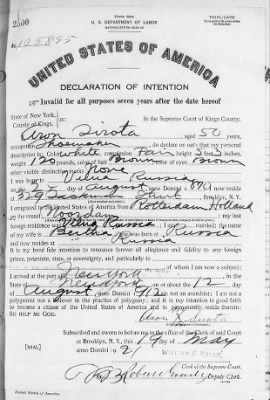 2500
U. S. DEPARTMENT OF LABOR
NATURALIZATION SERVICE
TRIPLICATE
No. 125855
UNITED STATES OF AMERICA
DECLARATION OF INTENTION
Invalid for all purposes seven years after the date hereof
State of New York,
County of Kings,
In the Supreme Court of Kings County.
I, Aron Sirota aged 50 years,
occupation Shoemaker, do declare on oath that my personal
description is: Color White, complexion Fair, height 5 feet 3 inches,
weight 120 pounds, color of hair Brown, color of eyes Brown
other visible distinctive marks None
I was born in Vilna Russia
on the 15 day of August, anno Domini 1870; I now reside
at Street, Brooklyn, N. Y.
I emigrated to the United States of America from Rotterdam Holland
on the vessel; my last
foreign residence was Vilna Russia; I am married; the name
of my wife is; she was born at Russia
and now resides at Russia
It is my bona fide intention to renounce forever all allegiance and fidelity to any foreign
prince, potentate, state, or sovereignty, and particularly to
of whom I am now a subject;
I arrived at the port of New York, in the
State of New York, on or about the 12 day
of August, anno Domini 1912; I am not an anarchist; I am not a
polygamist nor a believer in the practice of polygamy; and it is my intention in good faith
to become a citizen of the United States of America and to permanently reside therein:
SO HELP ME GOD.
Aron Sirota
Subscribed and sworn to before me in the office of the Clerk of said Court
at Brooklyn, N. Y., this 19 day of May
anno Domini 1921
[SEAL]
WILLIAM E. KELLY
Clerk of the Supreme Court.
By Deputy Clerk.